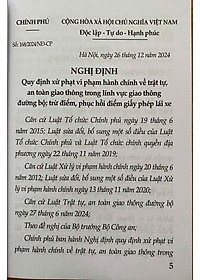 CHÍNH PHỦ
CỘNG HÒA XÃ HỘI CHỦ NGHĨA VIỆT NAM
Độc lập - Tự do - Hạnh phúc
Số: 168/2024/NĐ-CP
Hà Nội, ngày 26 tháng 12 năm 2024
NGHỊ ĐỊNH
Quy định xử phạt vi phạm hành chính về trật tự,
an toàn giao thông trong lĩnh vực giao thông
đường bộ; trừ điểm, phục hồi điểm giấy phép lái xe
Căn cứ Luật Tổ chức Chính phủ ngày 19 tháng
6 năm 2015; Luật sửa đổi, bổ sung một số điều của Luật
Tổ chức Chính phủ và Luật Tổ chức chính quyền địa
phương ngày 22 tháng 11 năm 2019;
Căn cứ Luật Xử lý vi phạm hành chính ngày 20 tháng
6 năm 2012; Luật sửa đổi, bổ sung một số điều của Luật Xử
lý vi phạm hành chính ngày 13 tháng 11 năm 2020;
Căn cứ Luật Trật tự, an toàn giao thông đường bộ
ngày 27 tháng 6 năm 2024;
Theo đề nghị của Bộ trưởng Bộ Công an;
Chính phủ ban hành Nghị định quy định xử phạt vi
phạm hành chính về trật tự, an toàn giao thông trong
5